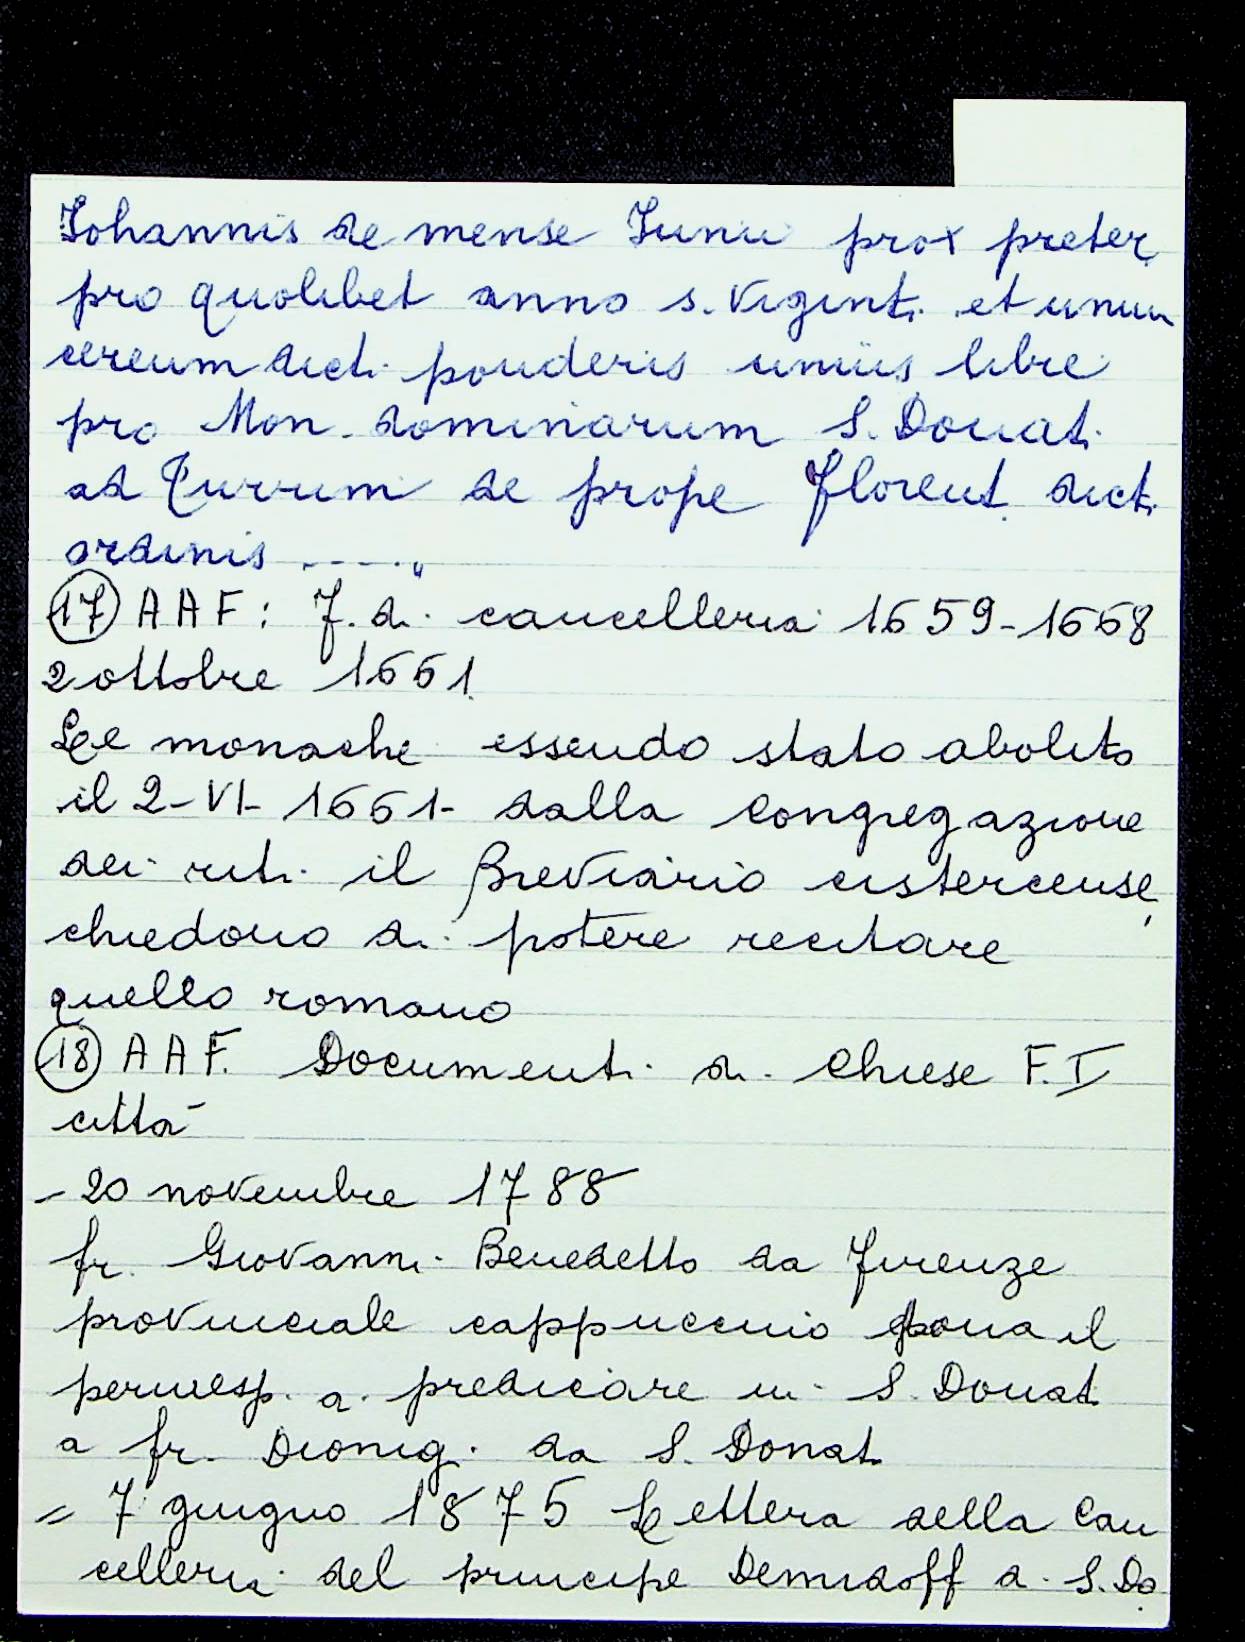 Johannis de mense Junii prox preter
pro quolibet anno s. vigint. et unum
cereum dicti ponderis unius libre
pro Mon. dominarum S. Donati
ad Turrim de prope Florent. dict.
ordinis ....."
(17) AAF: F. di cancelleria 1659-1668
2 ottobre 1661
Le monache essendo stato abolito
il 2-VI-1661- dalla Congregazione
dei riti il Breviario cistercense,
chiedono di potere recitare
quello romano
(18) AAF. Documenti di Chiese F. I
città
- 20 novembre 1788
fr. Giovanni Benedetto da Firenze
provinciale cappuccino dona il
a predicare in S. Donat.
a fr. Dionigi da S. Donat.
= 7 giugno 1875 Lettera della Can
celleria del principe Demidoff a S. Do